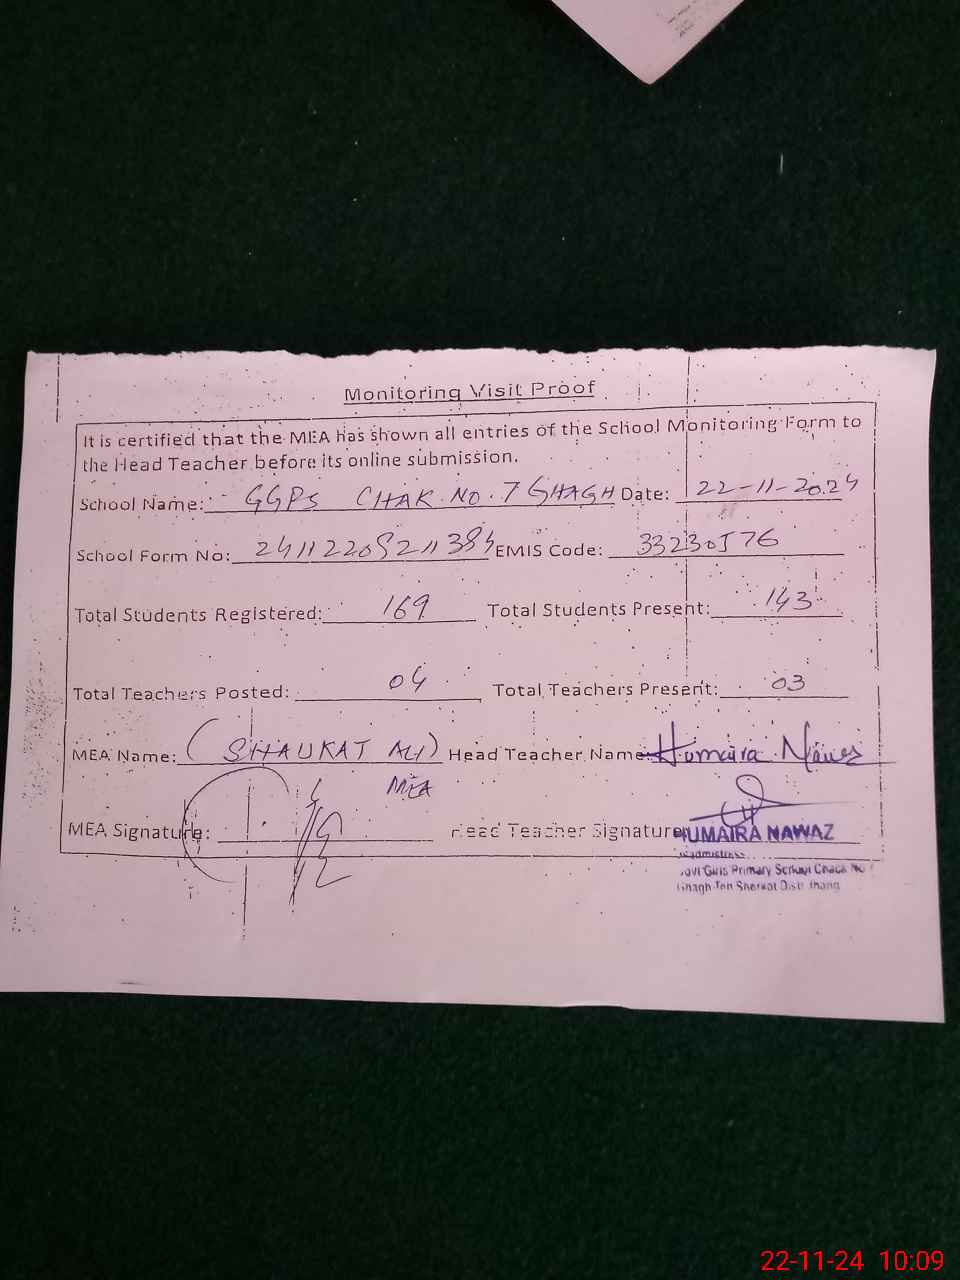 Monitoring Visit Proof
It is certified that the MEA has shown all entries of the School Monitoring Form to
the Head Teacher before its online submission.
School Name: GGPS CHAK NO. 7 GHAGH Date: 22-11-2024
School Form No: EMIS Code: 33230576
Total Students Registered: 169 Total Students Present: 143
Total Teachers Posted: 04 Total Teachers Present: 03
MEA Name: (SHAUKAT ALI) Head Teacher Name: Humaira Nawaz
MEA
MEA Signature: Head Teacher Signature: HUMAIRA NAWAZ
Headmistress
Govt Girls Primary School Chack No
Ghagh Teh Shorkot Distt Jhang
22-11-24 10:09